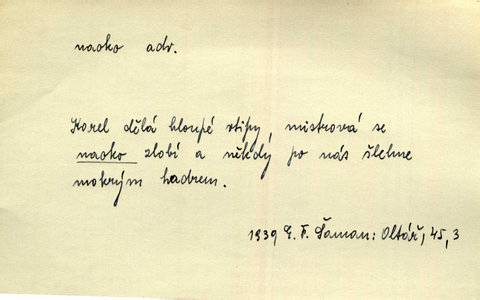 naoko adv.
Karel dělá hloupé vtipy, mistrová se
naoko zlobí a někdy po nás šlehne
mokrým hadrem.
1939 E. F. Šaman: Oltář, 45, 3